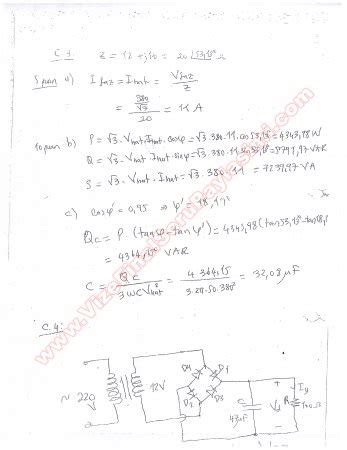 C.3. Z = 12 + j16 = 20 ∠53,13°
5 puan a) I faz = I hat = V faz / Z
= (380/√3) / 20 = 11 A
10 puan b) P = √3 . V hat . I hat . cosφ = √3 . 380 . 11 . cos 53,13° = 4343,98 W
Q = √3 . V hat . I hat . sinφ = √3 . 380 . 11 . sin 53,13° = 5791,97 VAR
S = √3 . V hat . I hat = √3 . 380 . 11 = 7239,97 VA
c) cosφ' = 0,95 ⇒ φ' = 18,19°
Qc = P (tanφ - tanφ') = 4343,98 (tan 53,13° - tan 18,19°)
= 4364,15 VAR
C = Qc / 3WCV hat² = 4.364,15 / 3.2π.50.380² = 32,08 μF
C.4.
~ 220 V
12V
D4
D1
D2
D3
C
43uF
Vd
Iy
R
100Ω
www.VizeFinalSoruPaylasimi.com